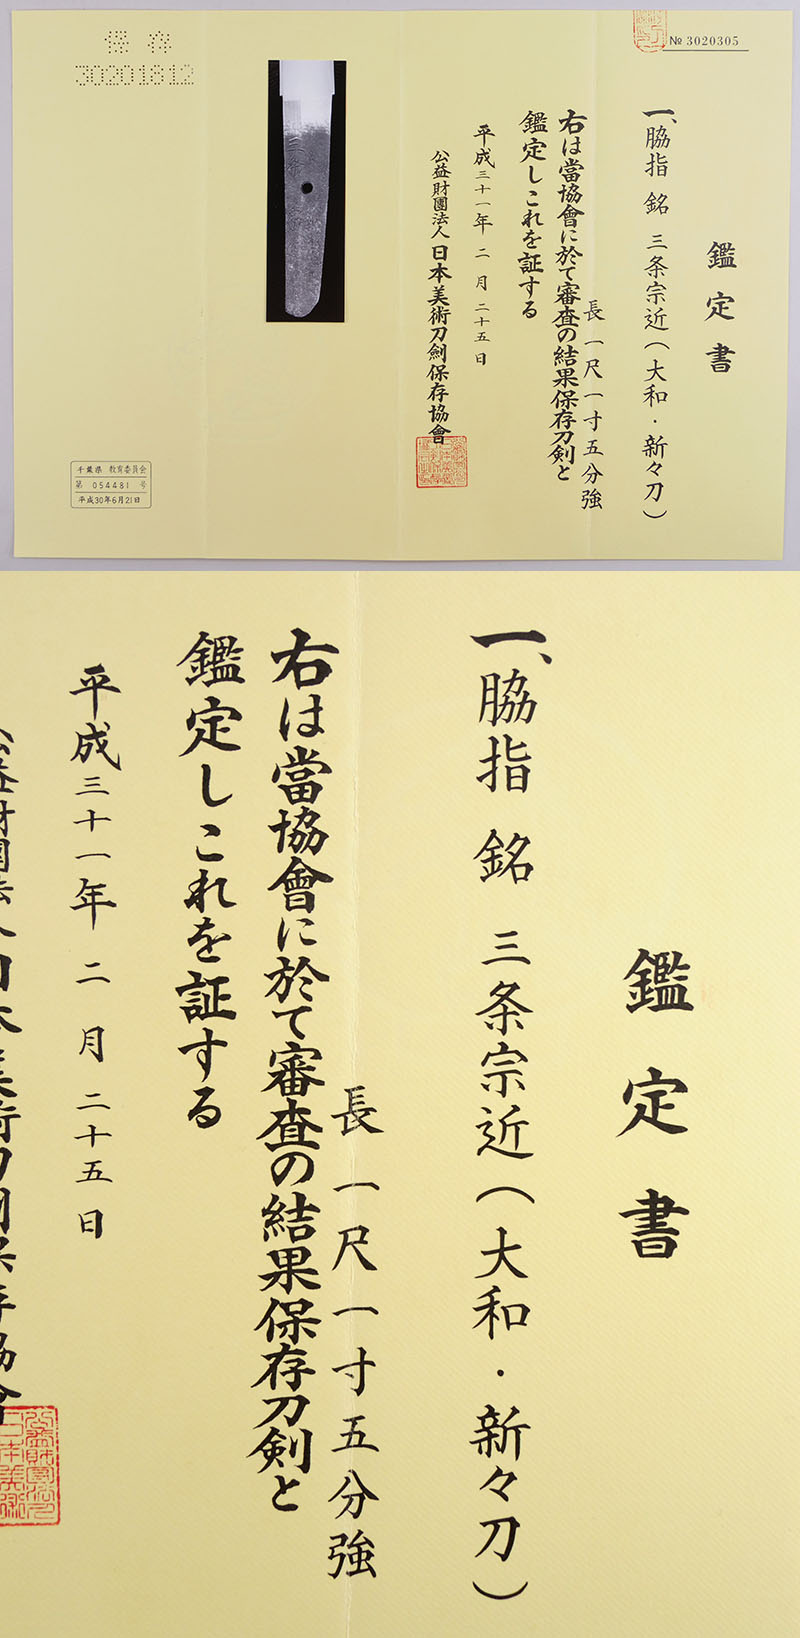 № 3020305
鑑定書
一、脇指 銘 三条宗近(大和・新々刀)
長 一尺一寸五分強
右は當協會に於て審査の結果保存刀剣と
鑑定しこれを証する
平成三十一年 二 月 二十五 日
公益財團法人 日本美術刀劍保存協會
保存
30201812
千葉県 教育委員会
第 054481 号
平成30年6月21日
鑑定書
一、脇指 銘 三条宗近(大和・新々刀)
長 一尺一寸五分強
右は當協會に於て審査の結果保存刀剣と
鑑定しこれを証する
平成三十一年 二 月 二十五 日